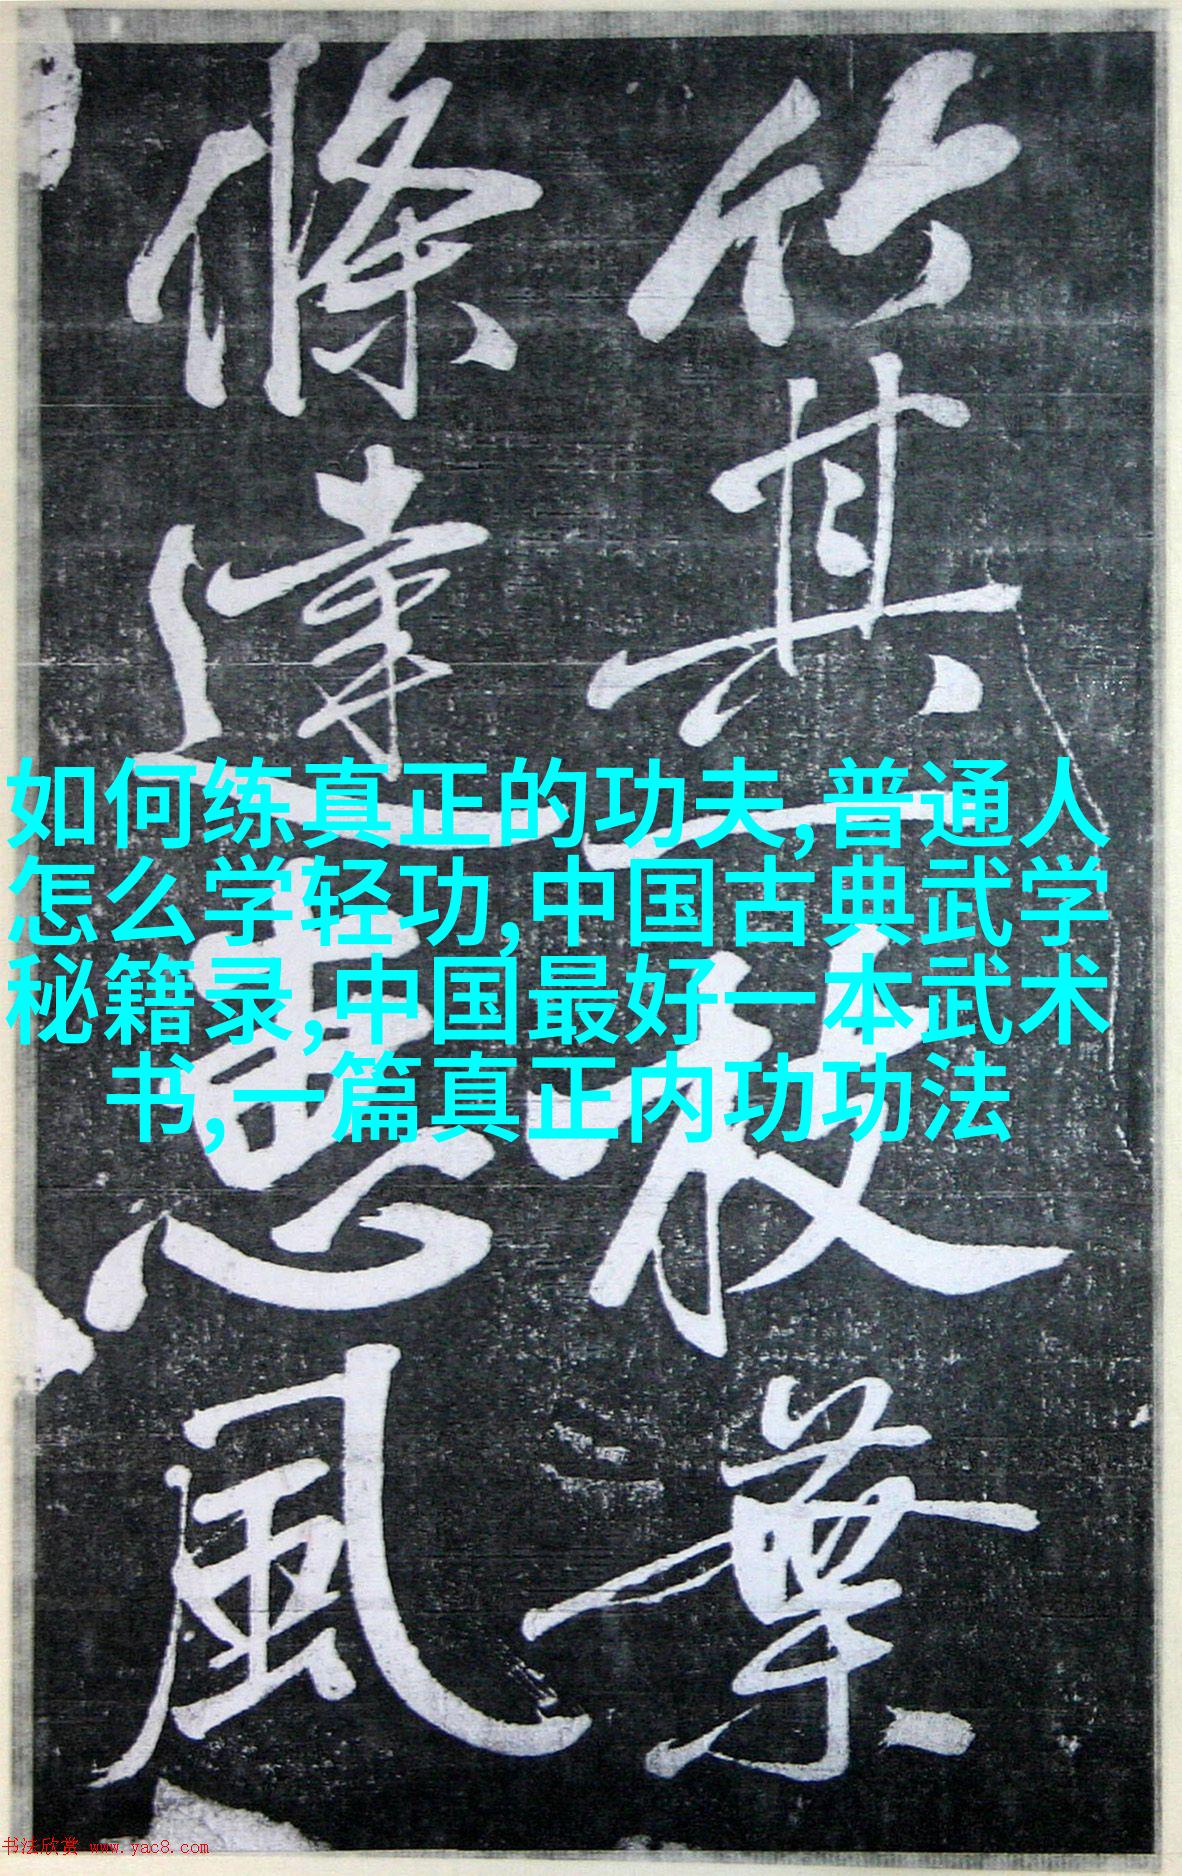 竹其一枝葉
條達惠風
如何练真正的功夫,普通人
怎么学轻功,中国古典武学
秘籍录,中国最好一本武术
书,一篇真正内功功法
书法欣赏 www.yac8.com